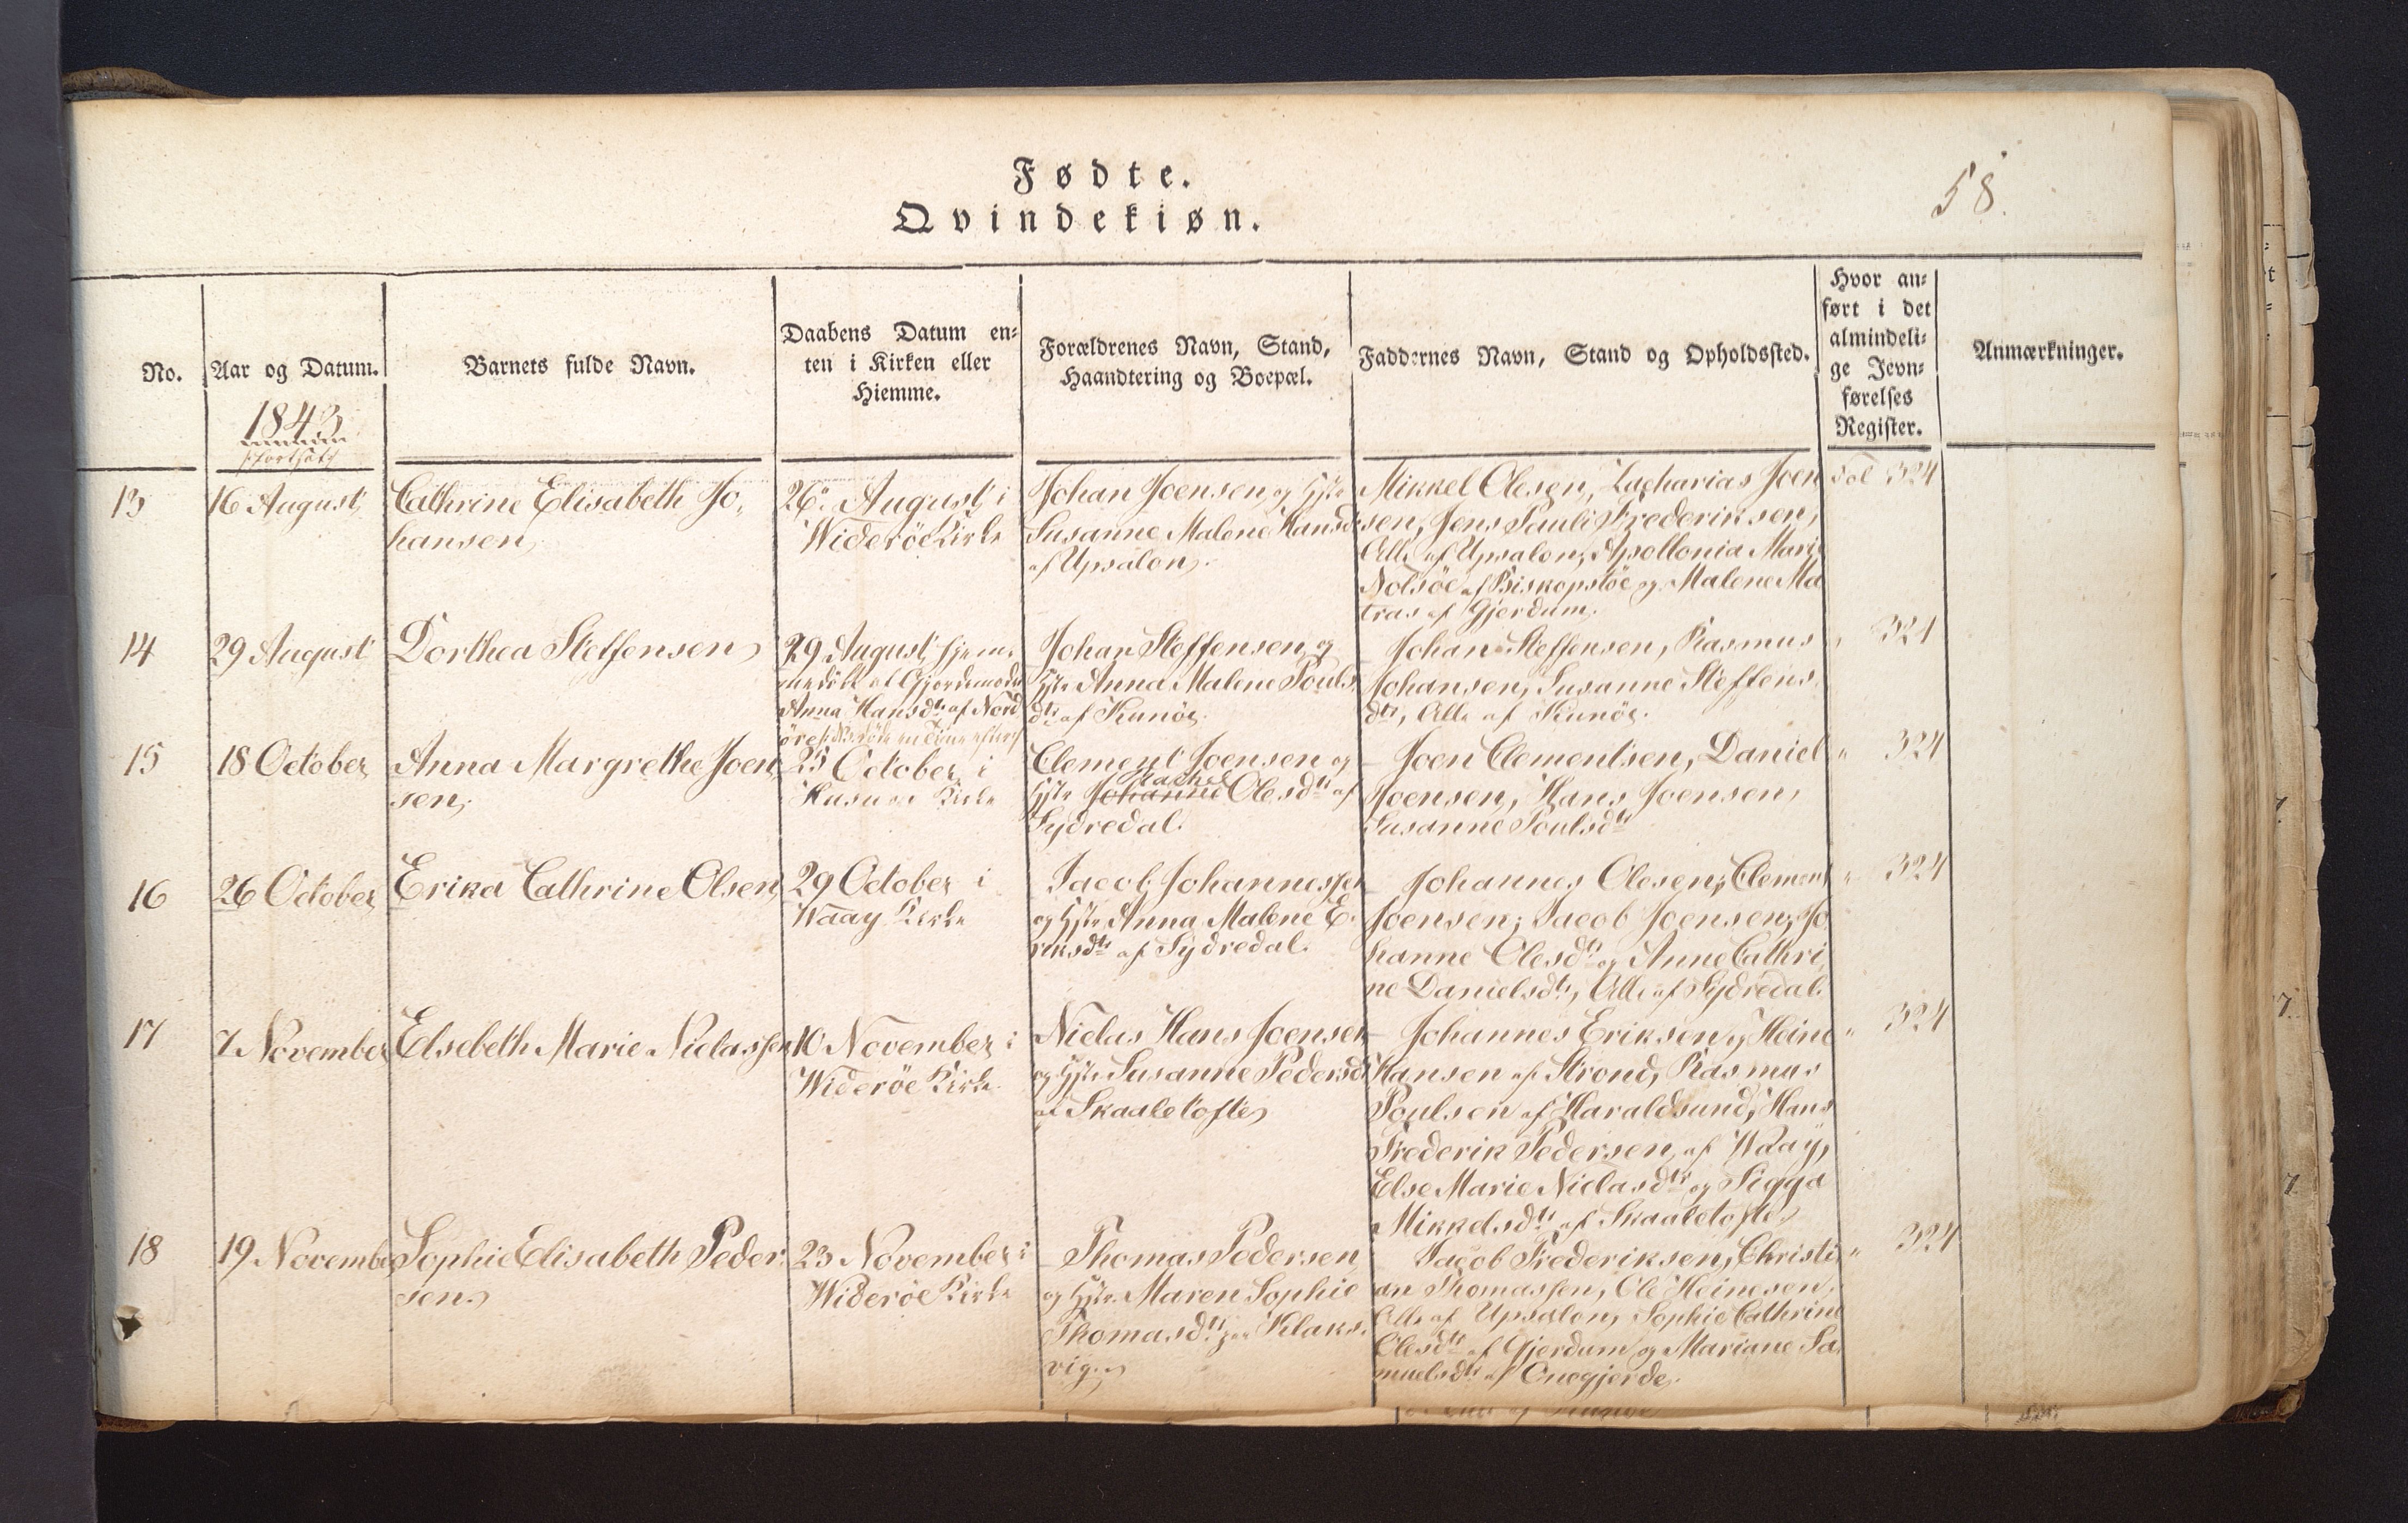 Fødte.
Qvindekiøn.
58.
No.
Aar og Datum.
1843
fortsat
Barnets fulde Navn.
Daabens Datum en-
ten i Kirken eller
Hiemme.
Forældrenes Navn, Stand,
Haandtering og Boepæl.
Faddernes Navn, Stand og Opholdssted.
Hvor an-
ført i det
almindeli-
ge Jevn-
førelses
Register.
Anmærkninger.
13
16 August
Cathrine Elisabeth Jo-
hansen
26. August i
Widerøe Kirke
Johan Joensen og Hstr
Susanne Malene Hansd
af Upsalon.
Mikkel Olesen, Zacharias Joen
sen, Jens Pauli Frederiksen,
Alle af Upsalon, Apollonia Marie
Nolsöe af Biskopstöe og Malene Ma
tras af Gjerdum.
Fol 324
14
29 August
Dorthea Steffensen
29 August hjem-
medöbt af Gjordemoder
Anna Hansdtr af Nord
öre
Johan Steffensen og
Hstr Anna Malene Pouls
dtr af Kunöe.
Johan Steffensen, Rasmus
Johansen, Susanne Steffens
dtr, Alle af Kunöe.
" 324
15
18 October
Anna Margrethe Joen
sen.
25 October i
Husum Kirke
Clement Joensen og
Rachel
Hstr Johanne Olesdtr af
Sydredal.
Joen Clementsen, Daniel
Joensen, Hans Joensen,
Susanne Poulsdtr
" 324
16
26 October
Erika Cathrine Olsen
29 October i
Waay Kirke
Jacob Johannessen
og Hstr Anna Malene E-
riksdtr af Sydredal.
Johannes Olesen, Clement
Joensen, Jacob Joensen, Jo
hanne Olesdtr og Anne Cathri
ne Danielsdtr, Alle af Sydredal.
" 324
17
7 November
Elsebeth Marie Niclassen
10 November i
Widerøe Kirke.
Niclas Hans Joensen
og Hstr Susanne Pedersd
af Skaaletofte
Johannes Eriksen og Heine
Hansen af Strond, Rasmus
Poulsen af Haraldsund, Hans
Frederik Pedersen af Waay,
Else Marie Niclasdtr og Sigga
Mikkelsdtr af Skaaletofte
" 324
18
19 Novembe
Sophie Elisabeth Peder-
sen
23 November i
Widerøe Kirke
Thomas Pedersen
og Hstr Maren Sophie
Thomasdtr paa Klaks-
vig.
Jacob Frederiksen, Christi
an Thomassen, Ole Heinesen,
Alle af Upsalon, Sophie Cathrine
Olesdtr af Gjerdum og Mariane Sa
muelsdtr af Önegjerde.
" 324